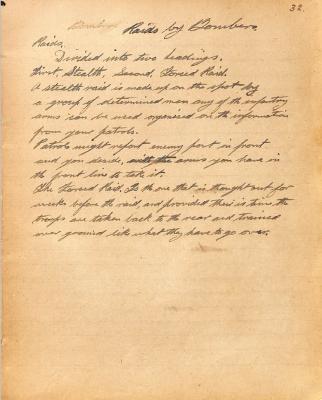 32.
Raids by Bombers
Raids.
Divided into two headings.
First, Stealth, Second, Forced Raid.
A stealth raid is made up on the spot by
a group of determined men any of the infantry
arms can be used organised on the information
from your patrols.
Patrols might report enemy post in front
and you decide, with the arms you have in
the front line to take it.
The Forced Raid. Is the one that is thought out for
weeks before the raid, and provided there is time, the
troops are taken back to the rear and trained
over ground like what they have to go over.